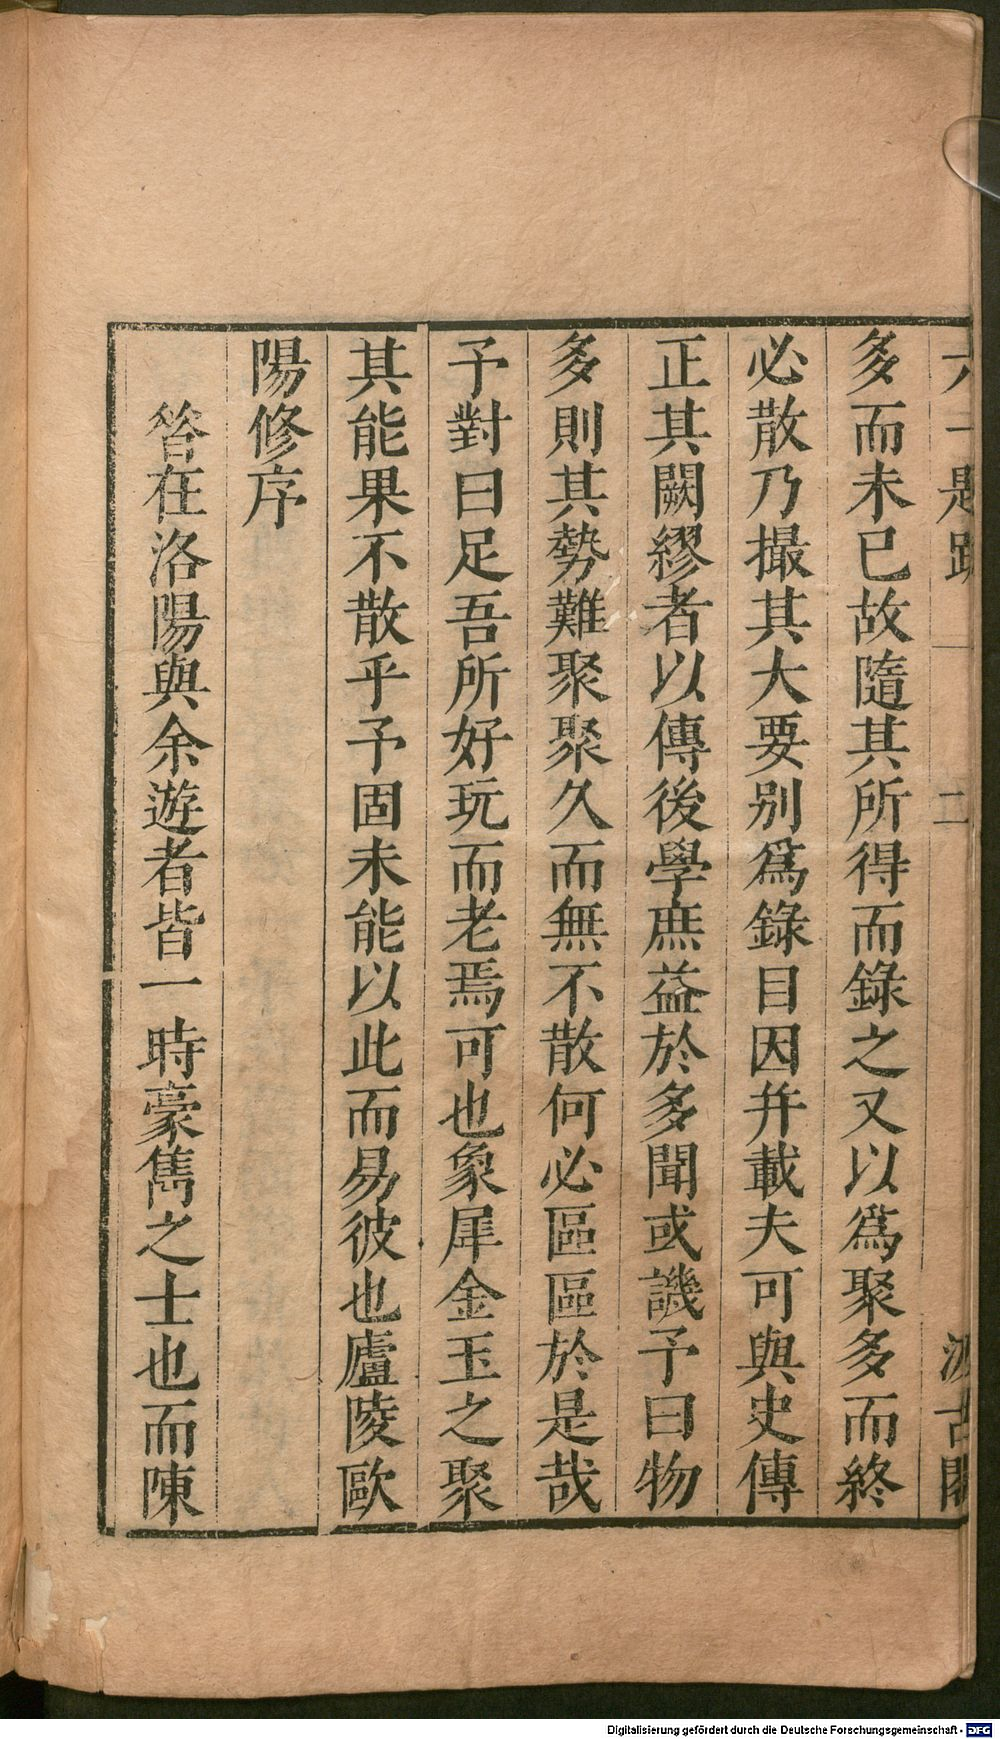 六一題跋 二 汲古閣
多而未已故隨其所得而錄之又以爲聚多而終
必散乃撮其大要别爲錄目因幷載夫可與史傳
正其闕繆者以傳後學庶益於多聞或譏予曰物
多則其勢難聚聚久而無不散何必區區於是哉
予對曰足吾所好玩而老焉可也象犀金玉之聚
其能果不散乎予固未能以此而易彼也廬陵歐
陽修序
昝在洛陽與余遊者皆一時豪雋之士也而陳
Digitalisierung gefördert durch die Deutsche Forschungsgemeinschaft - DFG